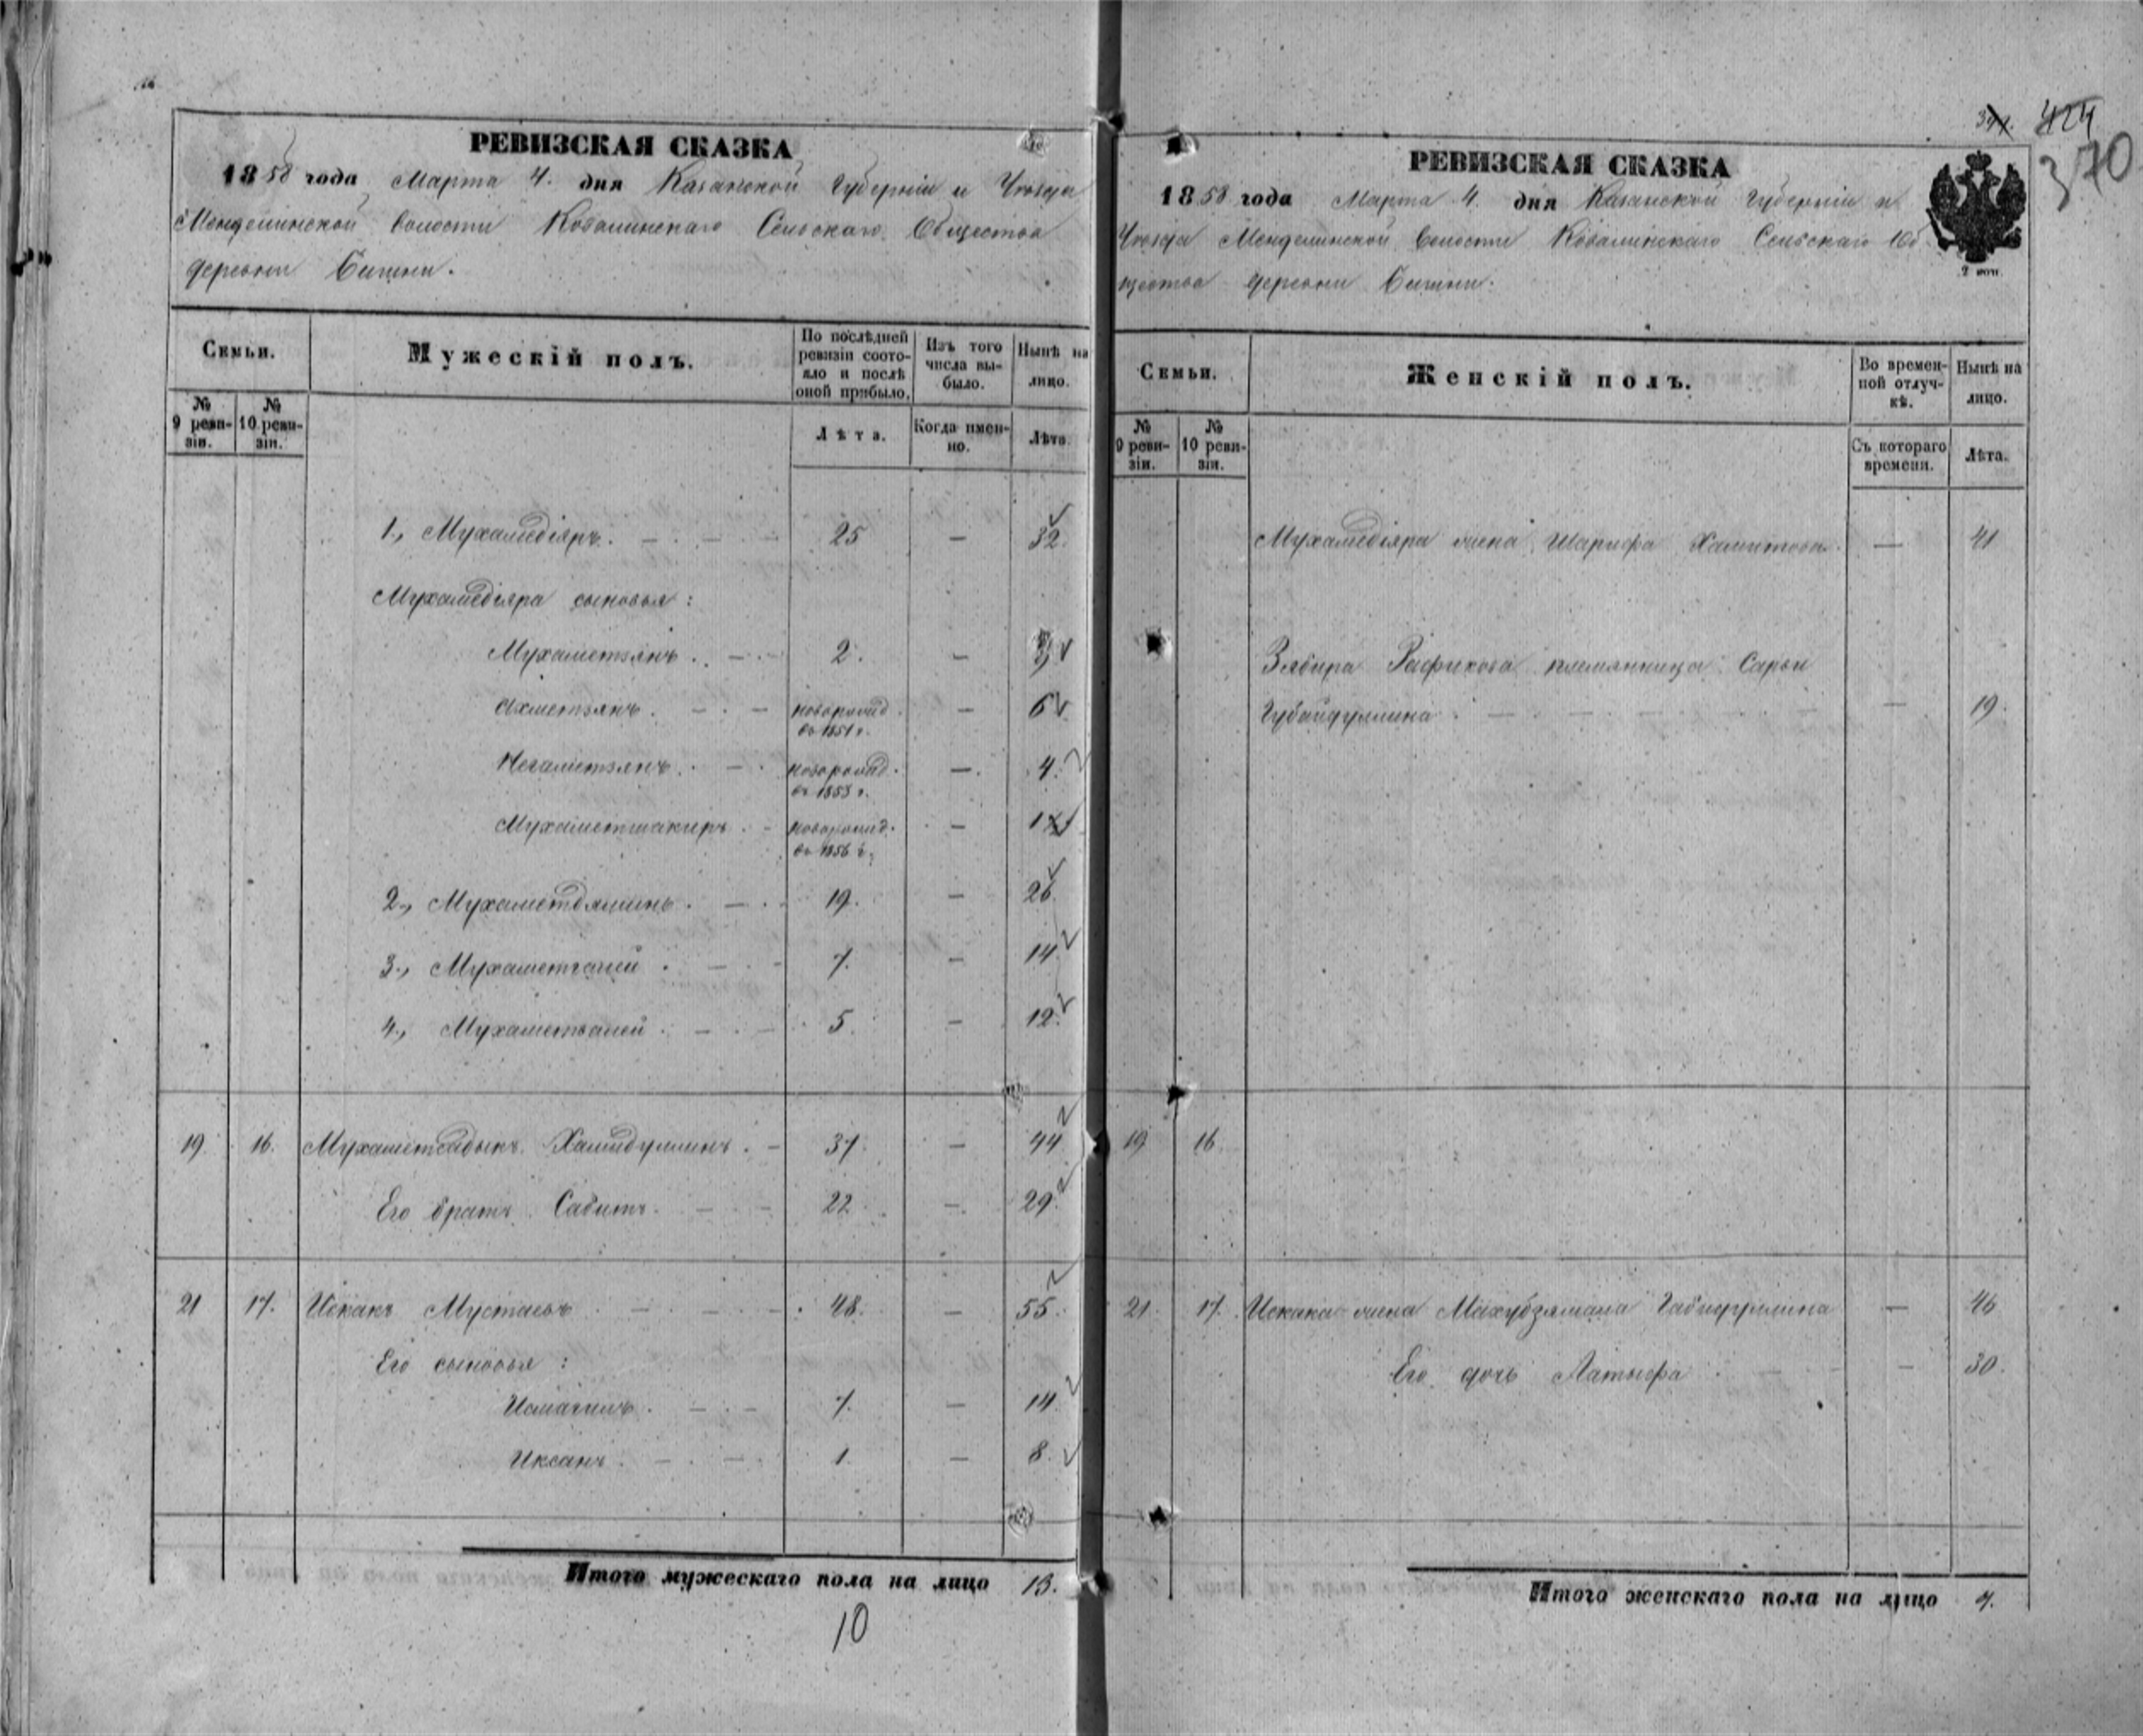 РЕВИЗСКАЯ СКАЗКА
1858 года Марта 4. дня Казанской Губерніи и Уѣзда
Менделинской волости Ковалинскаго Сельскаго Общества
деревни Бигини.
Семьи.
Мужескій полъ.
По послѣдней ревизіи состояло и послѣ оной прибыло.
Изъ того числа выбыло.
Нынѣ на лицо.
№ 9 ревизіи.
№ 10 ревизіи.
Лѣта.
Когда именно.
Лѣта.
1., Мухамедіяръ. — 25 — 32.
Мухамедіяра сыновья:
Мухаметзянъ. — 2. —
Ахметзянъ. — новорожд. въ 1851 г. — 6
Негаметзянъ. — новорожд. въ 1853 г. — 4.
Мухаметшакиръ. — новорожд. въ 1856 г. — 1
2., Мухаметдяминъ. — 19. — 26.
3., Мухаметгалей. — 7. — 14.
4., Мухаметвалей. — 5. — 12.
19 16. Мухаметсадыкъ Хамидуллинъ. — 37. — 44
Его братъ Сабитъ. — 22 — 29.
21 17. Исхакъ Мустаевъ — 48. — 55.
Его сыновья:
Исмагилъ. — 7. — 14.
Иксанъ. — 1. — 8.
Итого мужескаго пола на лицо 13.
10
424
370
РЕВИЗСКАЯ СКАЗКА
1858 года Марта 4. дня Казанской Губерніи и
Уѣзда Менделинской волости Ковалинскаго Сельскаго Об-
щества деревни Бигини.
Семьи.
Женскій полъ.
Во временной отлучкѣ.
Нынѣ на лицо.
№ 9 ревизіи.
№ 10 ревизіи.
Съ котораго времени.
Лѣта.
Мухамедіяра жена Шарифа Хамитова — 41
Зябира Рафикова племянница Сарби
Губайдуллина — 19.
19 16.
21. 17. Исхака жена Махубзямала Габидуллина — 46
Его дочь Латыфа — 30.
Итого женскаго пола на лицо 4.